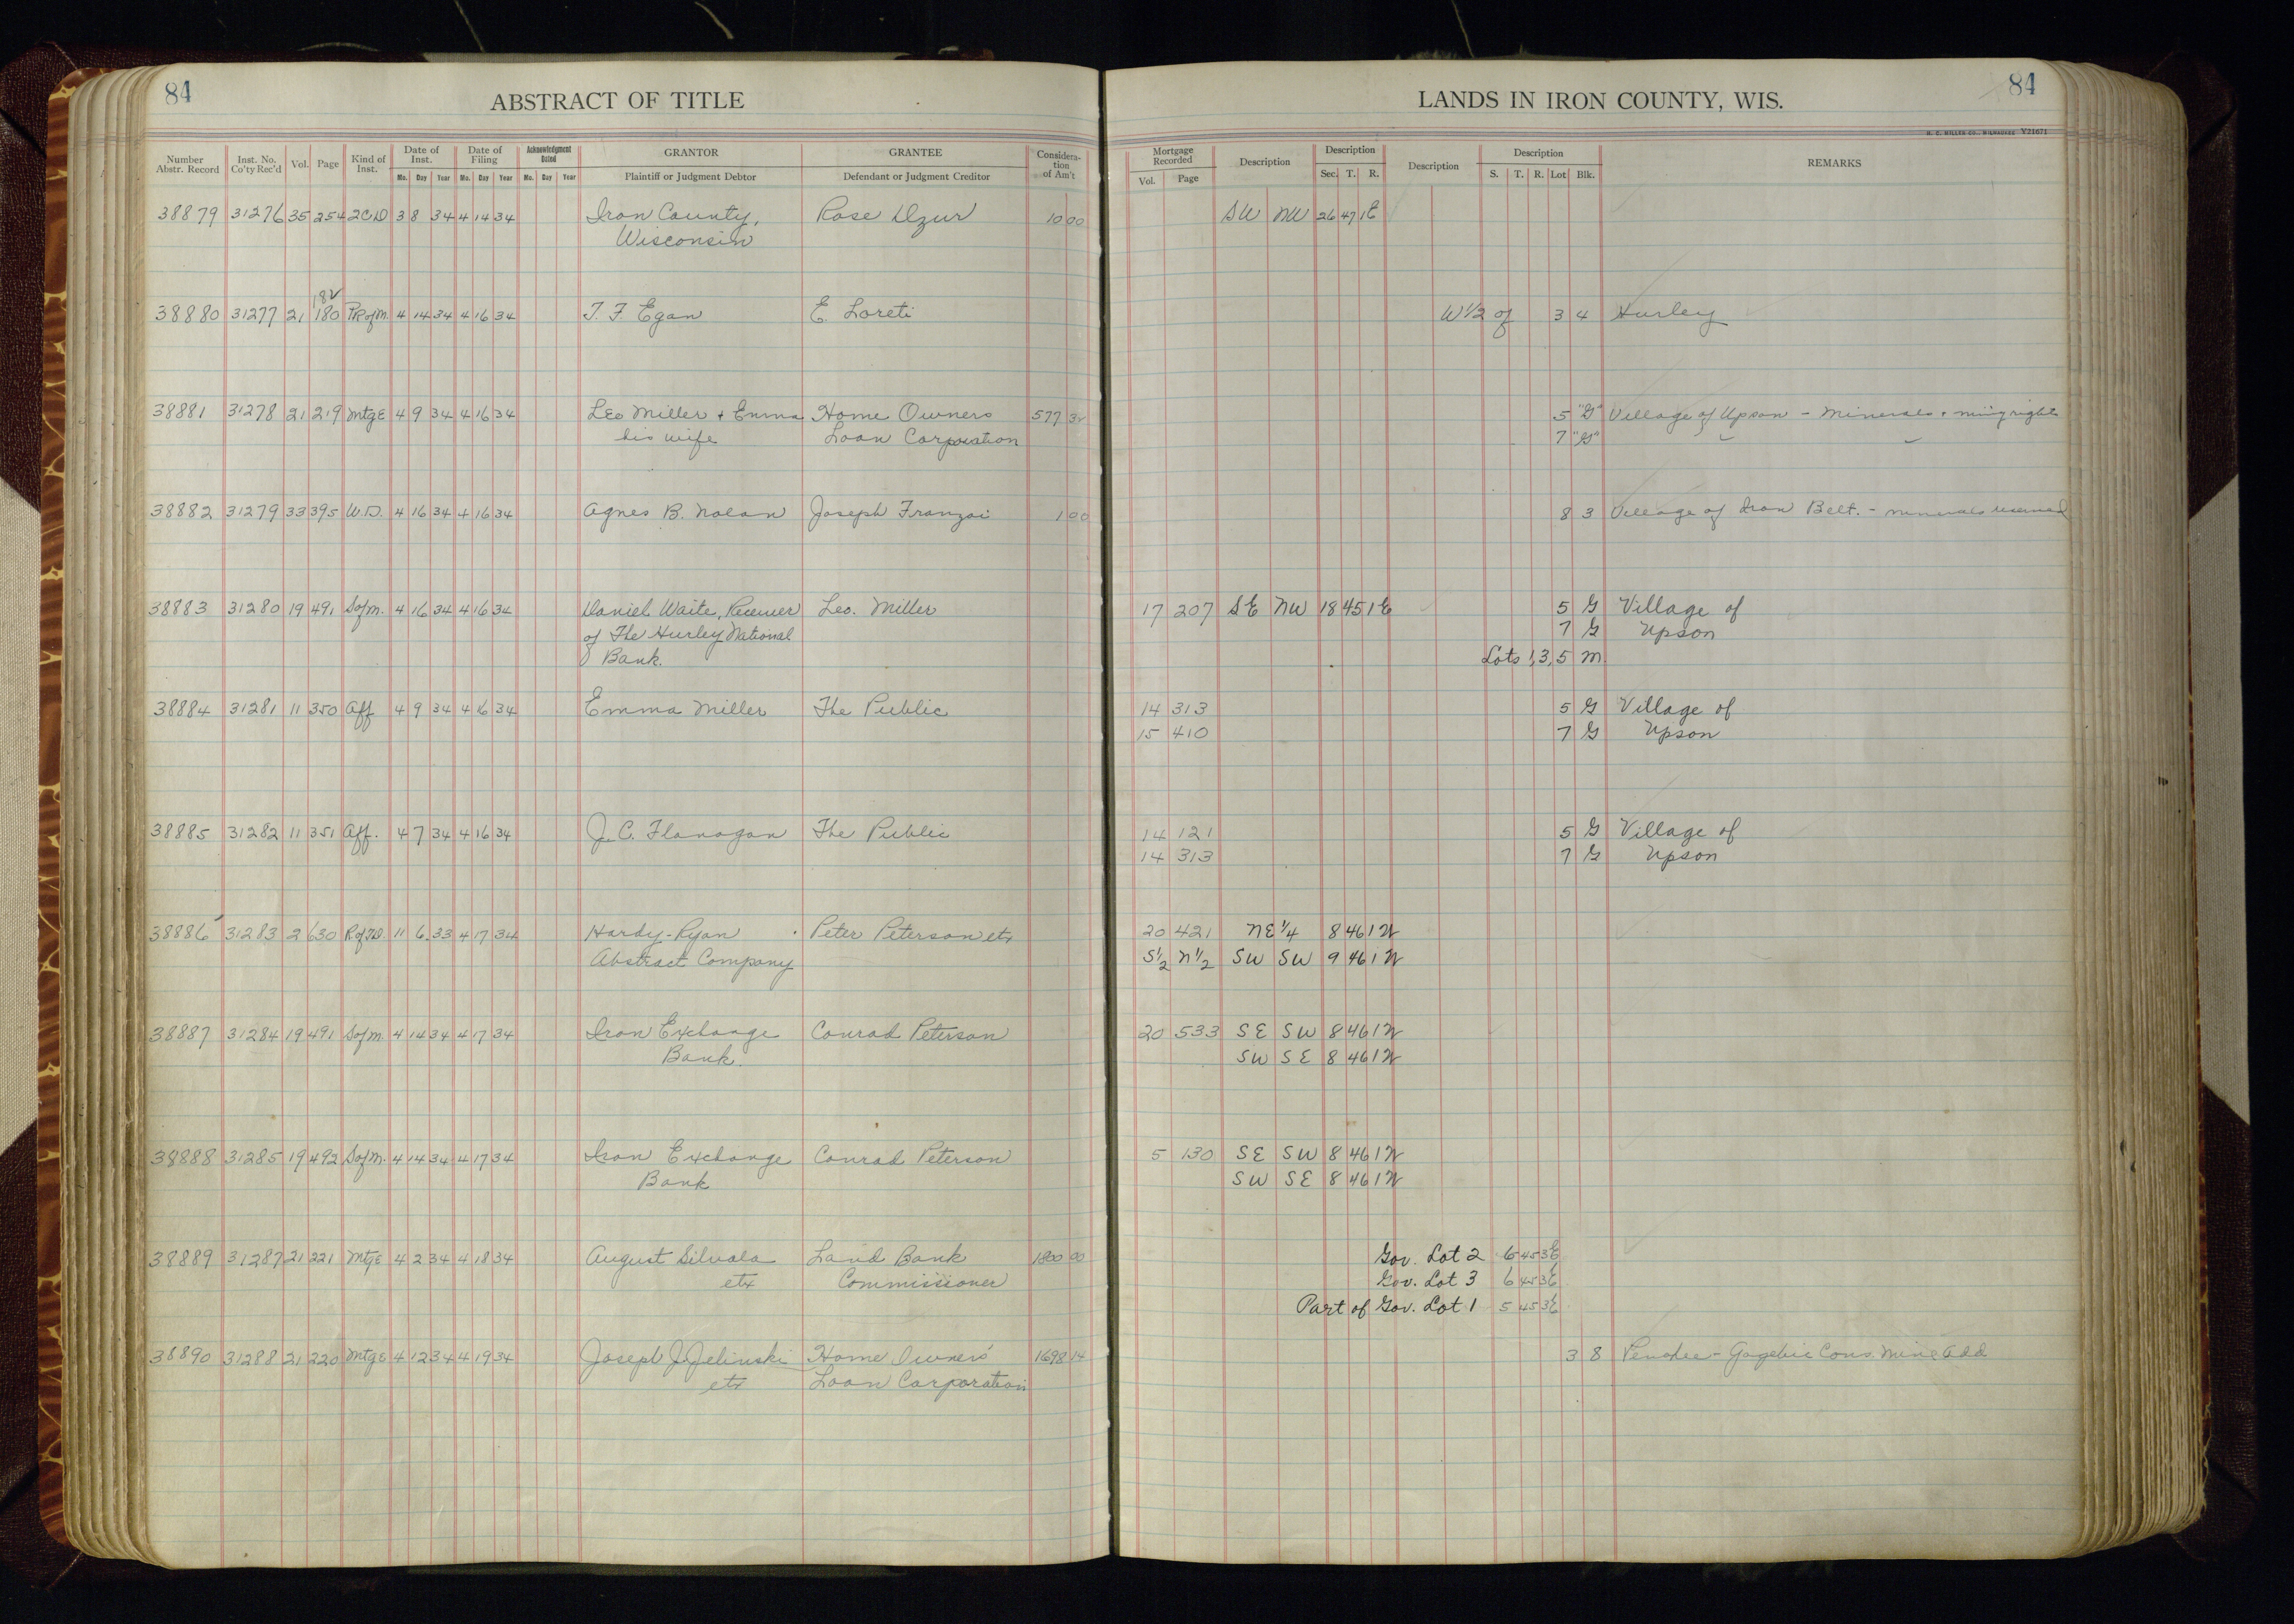 84
ABSTRACT OF TITLE
Number Abstr. Record | Inst. No. Co'ty Rec'd | Vol. | Page | Kind of Inst. | Date of Inst. Mo. Day Year | Date of Filing Mo. Day Year | Acknowledgment Dated Mo. Day Year | GRANTOR Plaintiff or Judgment Debtor | GRANTEE Defendant or Judgment Creditor | Considera-tion of Am't
38879 31276 35 254 2CD 3 8 34 4 14 34 Iron County, Rose 10 00
Wisconsin
182
38880 31277 21 180 PR of M. 4 14 34 4 16 34 T. F. Egan E. Loreti
38881 31278 21 219 Mtge 4 9 34 4 16 34 Leo Miller + Emma Home Owners 577 32
his wife Loan Corporation
38882 31279 33 395 W.D. 4 16 34 4 16 34 Agnes B. Nolan Joseph Franzoi 1 00
38883 31280 19 491 S of M. 4 16 34 4 16 34 Daniel Waite, Receiver Leo. Miller
of The Hurley National
Bank.
38884 31281 11 350 Aff 4 9 34 4 16 34 Emma Miller The Public
38885 31282 11 351 Aff. 4 7 34 4 16 34 J. C. Flanagan The Public
38886 31283 2 630 11 6 33 4 17 34 Hardy-Ryan Peter Peterson etx
Abstract Company
38887 31284 19 491 S of M. 4 14 34 4 17 34 Iron Exchange Conrad Peterson
Bank.
38888 31285 19 492 S of M. 4 14 34 4 17 34 Iron Exchange Conrad Peterson
Bank
38889 31287 21 221 Mtge 4 2 34 4 18 34 August Silvola Land Bank 1800 00
etx Commissioner
38890 31288 21 220 Mtge 4 12 34 4 19 34 Joseph J. Jelinski Home Owners' 1698 14
etx Loan Corporation
84
LANDS IN IRON COUNTY, WIS.
H. C. MILLER CO., MILWAUKEE Y21671
Mortgage Recorded Vol. Page | Description | Description Sec. T. R. | Description | Description S. T. R. Lot Blk. | REMARKS
SW NW 26 47 1E
W 1/2 of 3 4 Hurley
5 "G" Village of Upson - Minerals + mi'g rights
7 "G"
8 3 Village of Iron Belt. - minerals reserved
17 207 SE NW 18 45 1E 5 G Village of
7 G Upson
Lots 1, 3, 5 M
14 313 5 G Village of
15 410 7 G Upson
14 121 5 G Village of
14 313 7 G Upson
20 421 NE 1/4 8 46 1 W
S 1/2 N 1/2 SW SW 9 46 1 W
20 533 SE SW 8 46 1 W
SW SE 8 46 1 W
5 130 SE SW 8 46 1 W
SW SE 8 46 1 W
Gov. Lot 2 6 45 3E
Gov. Lot 3 6 45 3E
Part of Gov. Lot 1 5 45 3E
3 8 Penokee - Gogebic Cons. Mine Add